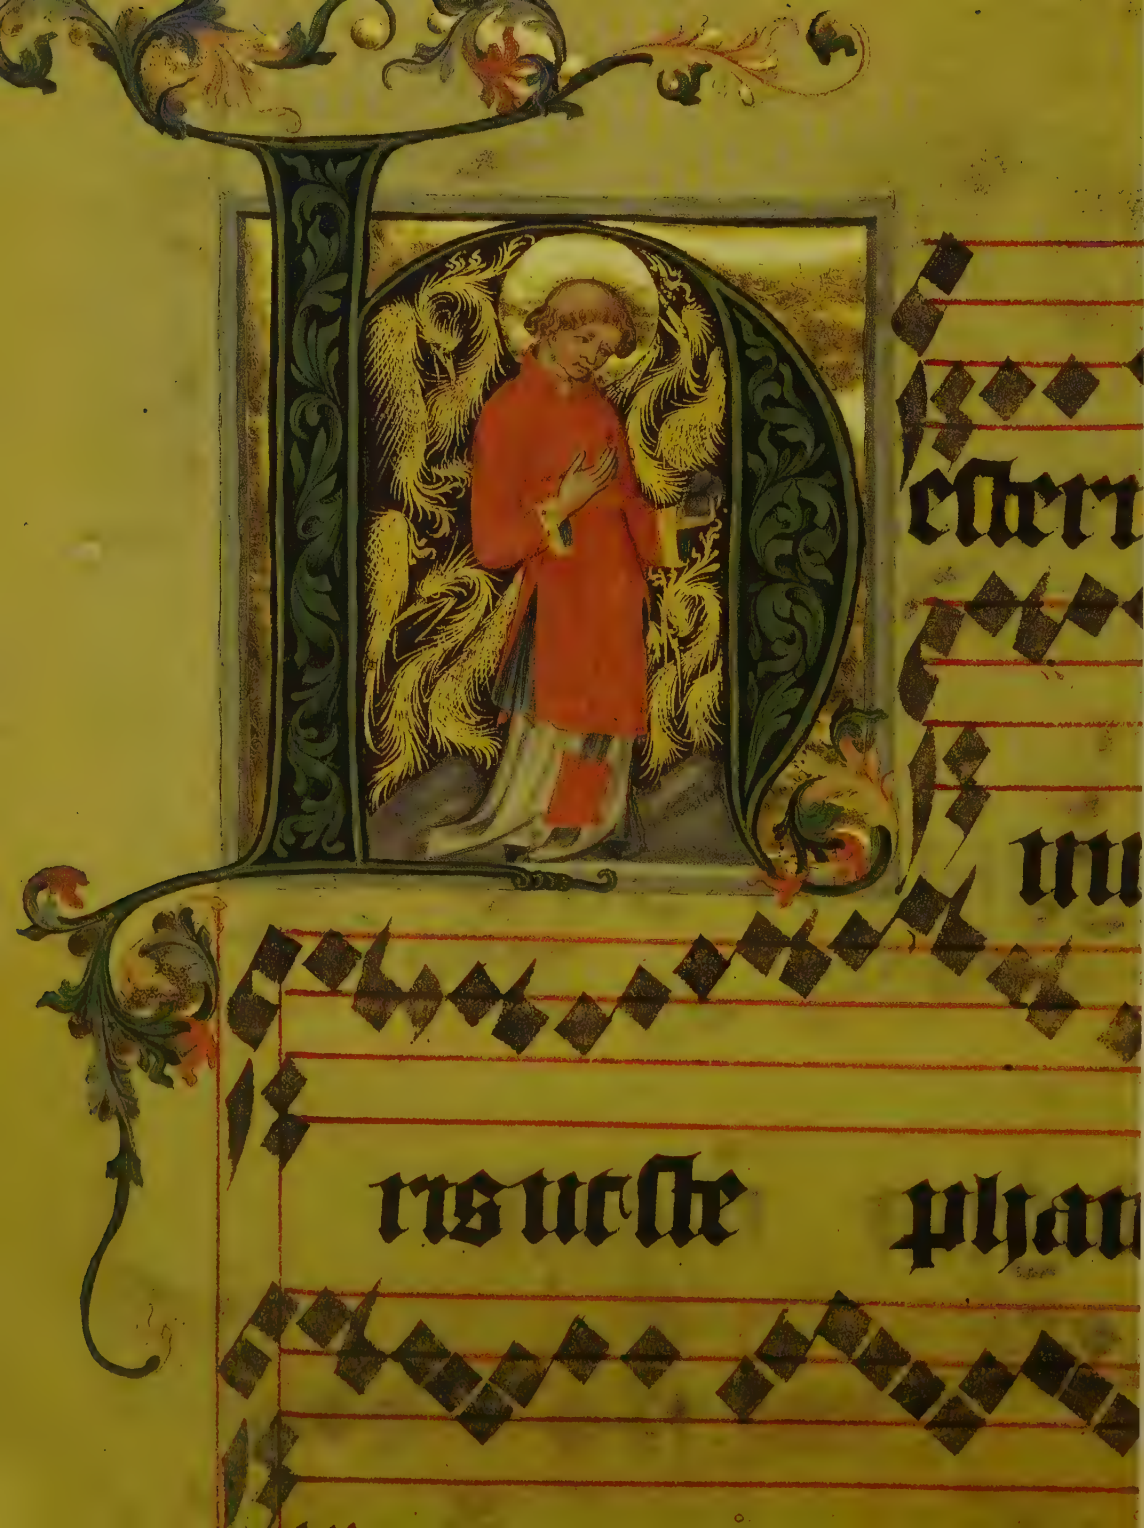 Hestern
nu
ris ut ste phan